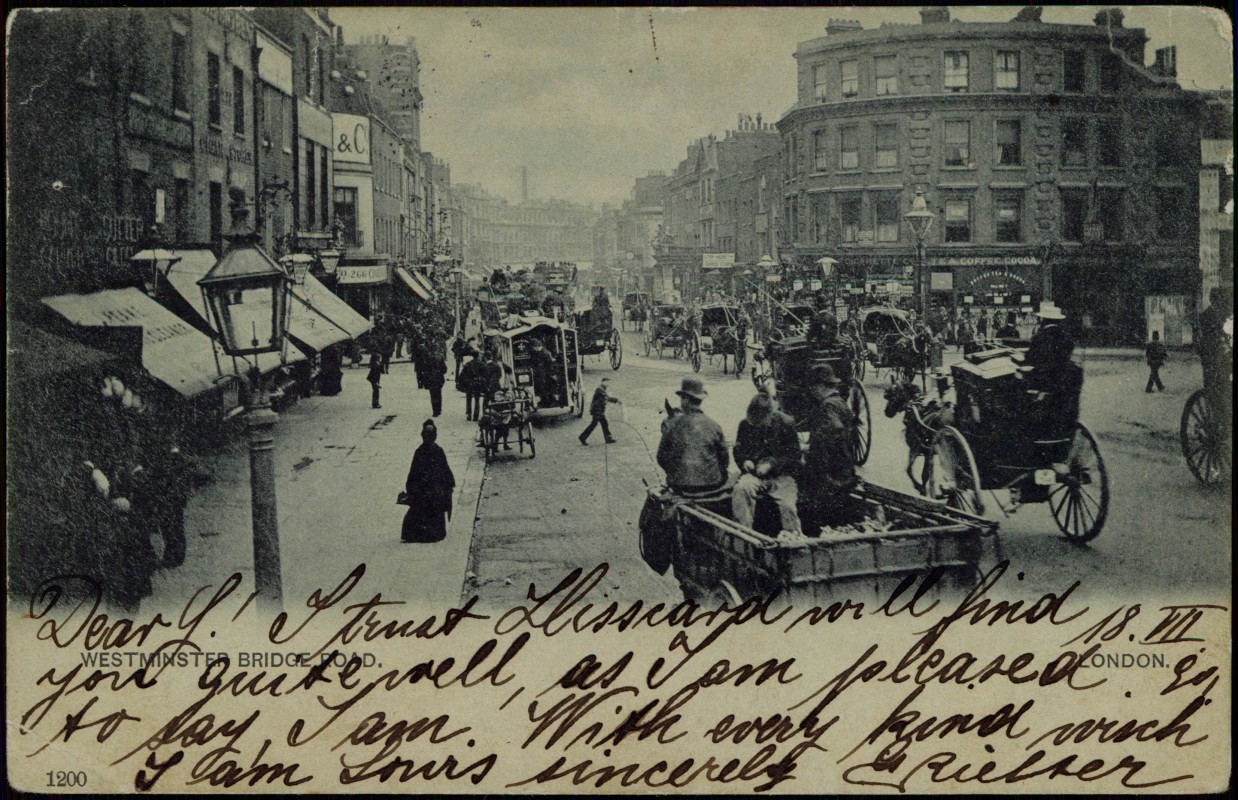 & C
O 266
TEA COFFEE COCOA
Dear G.! I trust this card will find
18. VII
WESTMINSTER BRIDGE ROAD.
LONDON.
you quite well, as I am pleased
to say, I am. With every kind wish
I am Yours sincerely
1200